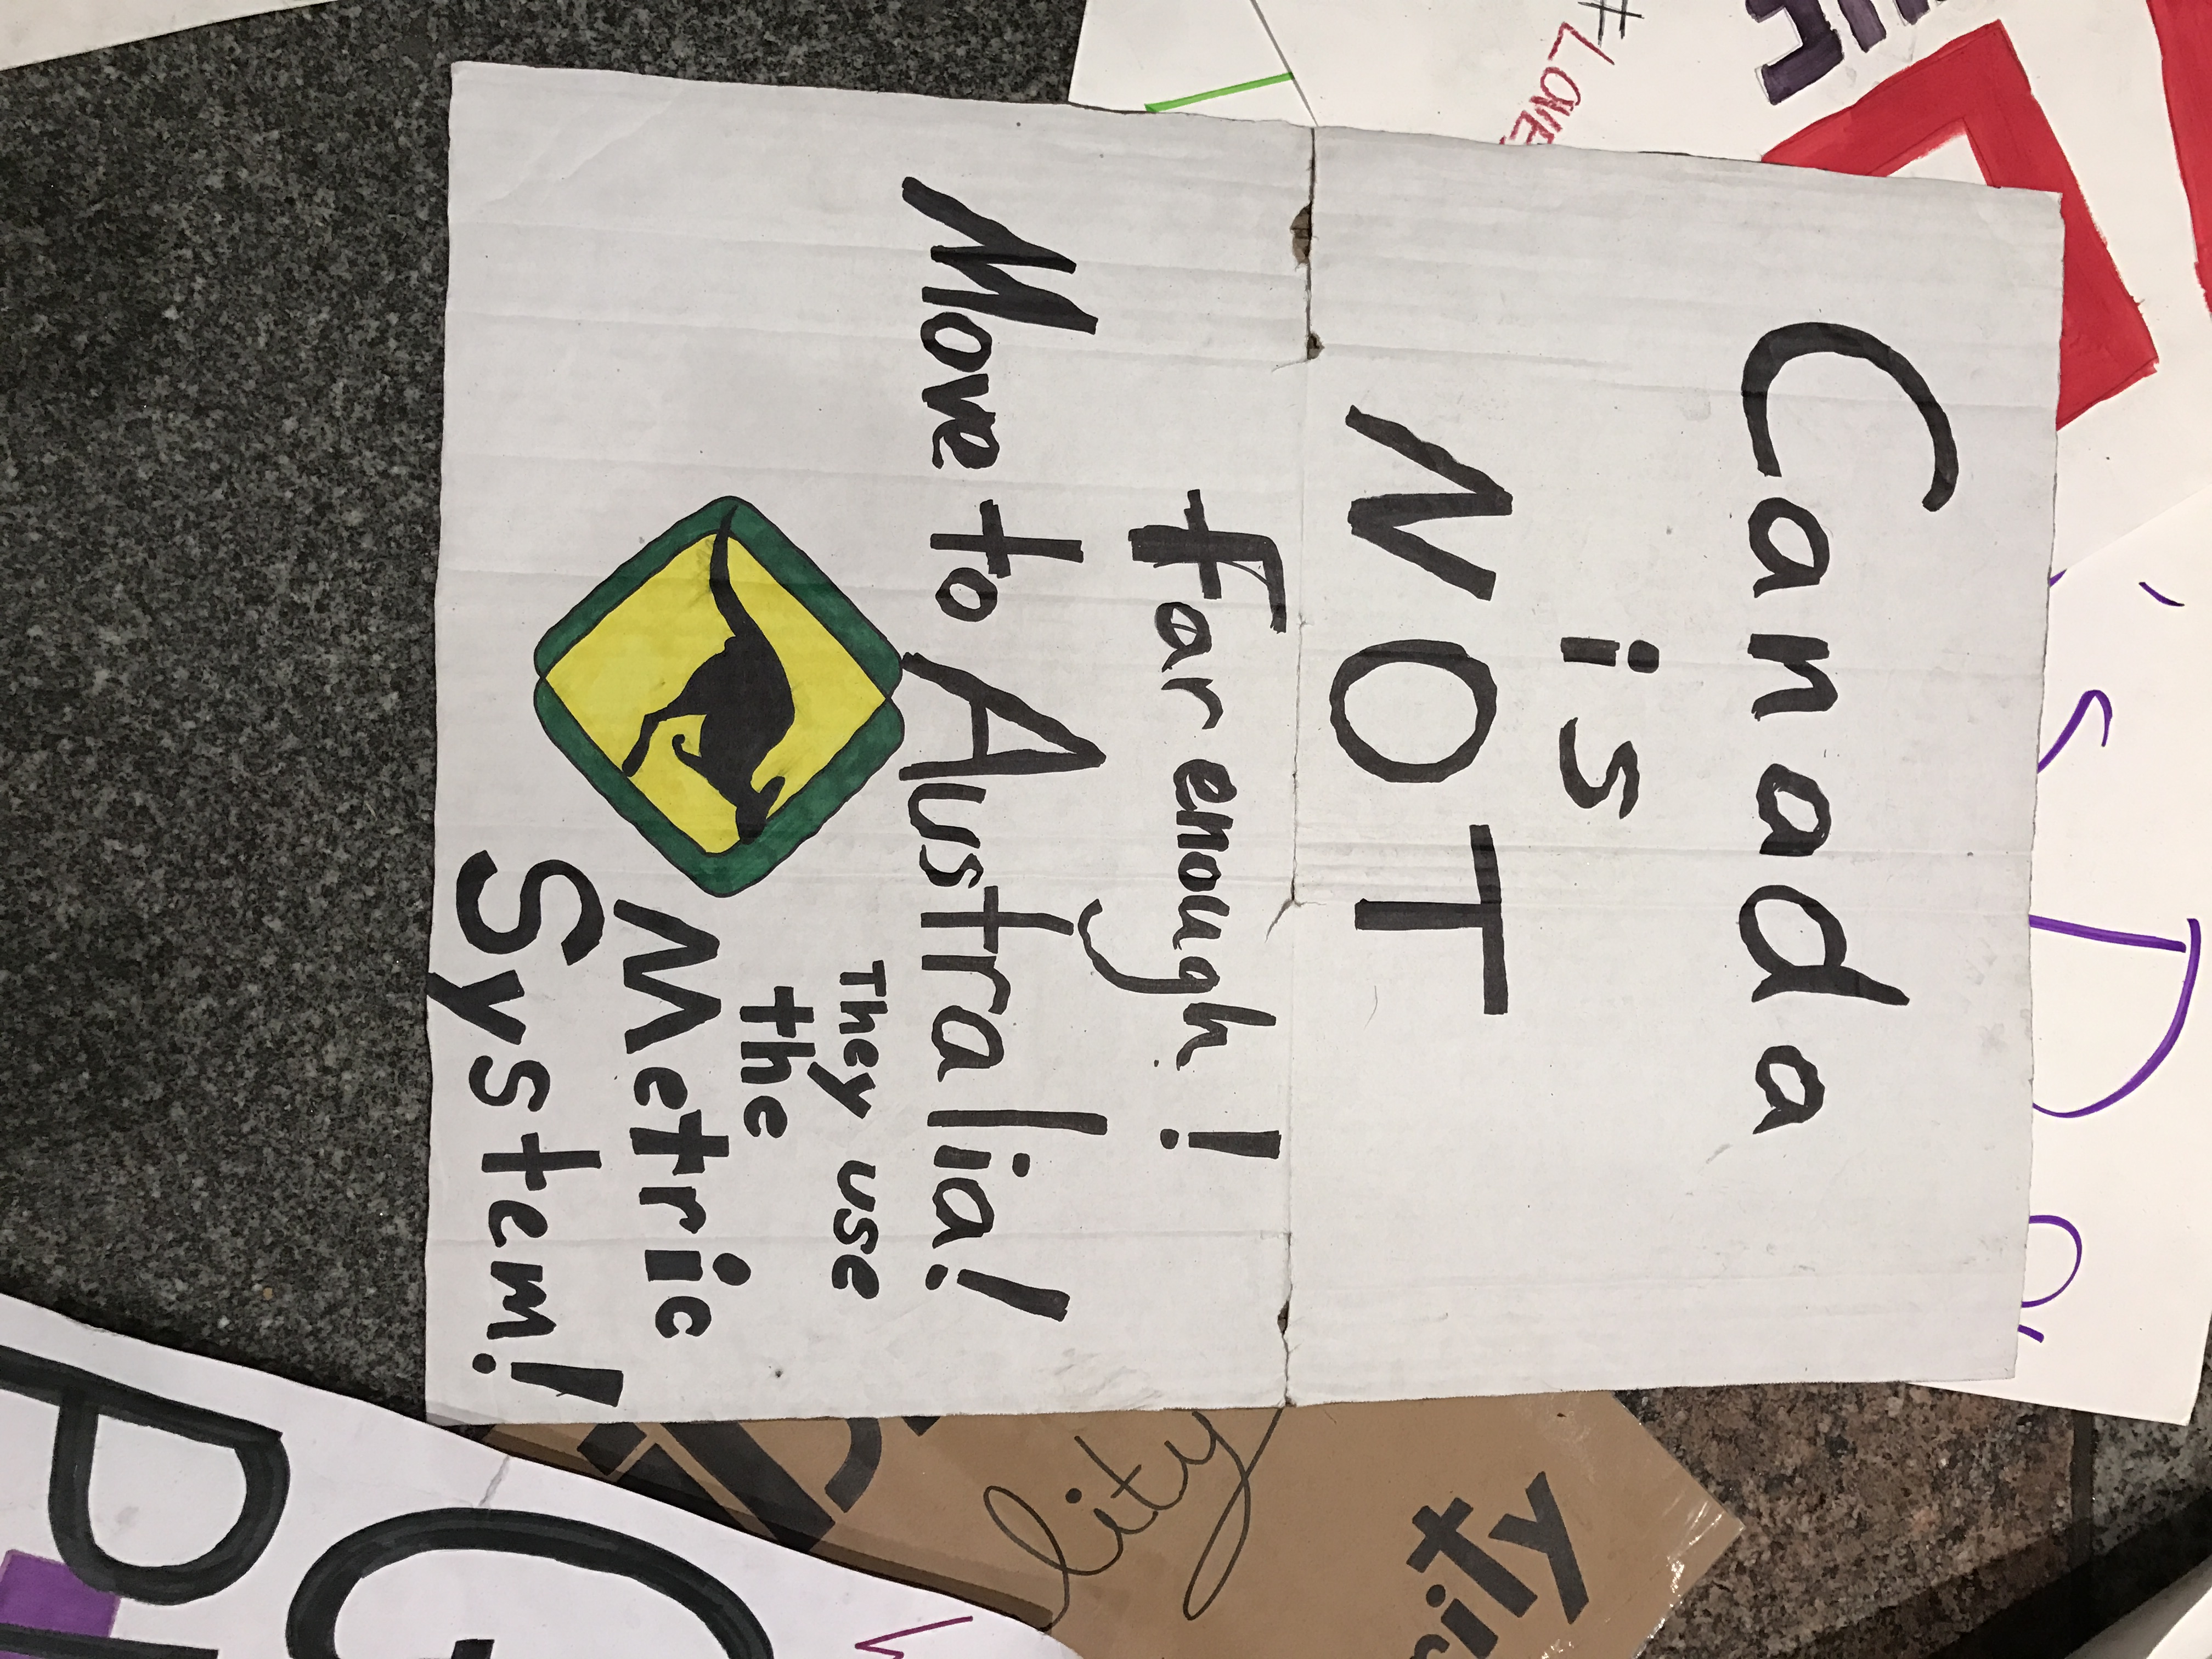 Canada
is
NOT
far enough!
Move to Australia!
They use
the
Metric
System!
#LOVE
lity
rity